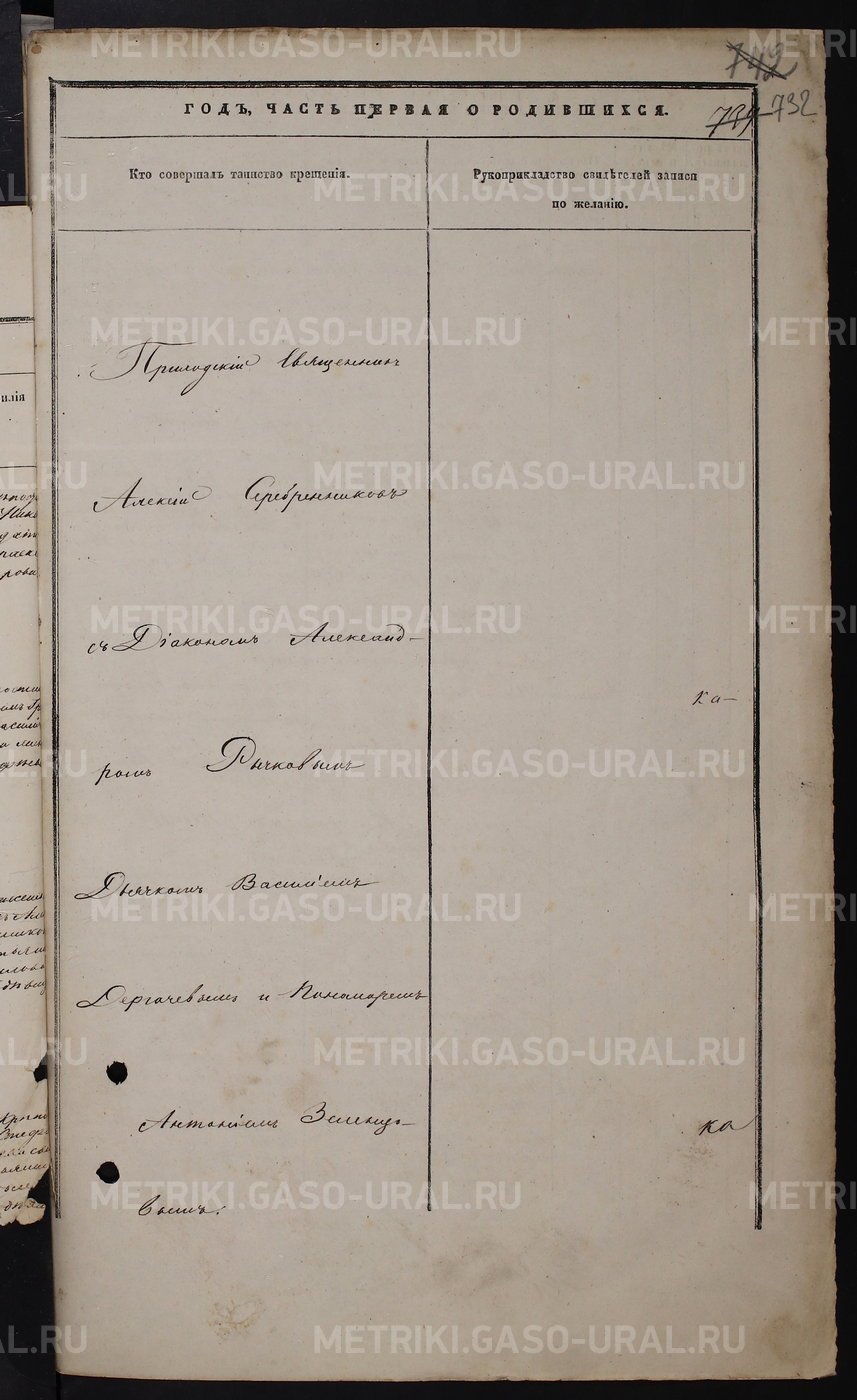 742
ГОДЪ, ЧАСТЬ ПЕРВАЯ О РОДИВШИХСЯ.
732
Кто совершалъ таинство крещенія.
Рукоприкладство свидѣтелей записи
по желанію.
Приходскій Священникъ
Алексій Серебренниковъ
съ Діакономъ Александ-
ка-
ромъ Рычковымъ
Дьячкомъ Василіемъ
Дергачевымъ и Пономаремъ
Антоніемъ Зеленцо-
ка
вымъ.
илія
METRIKI.GASO-URAL.RU